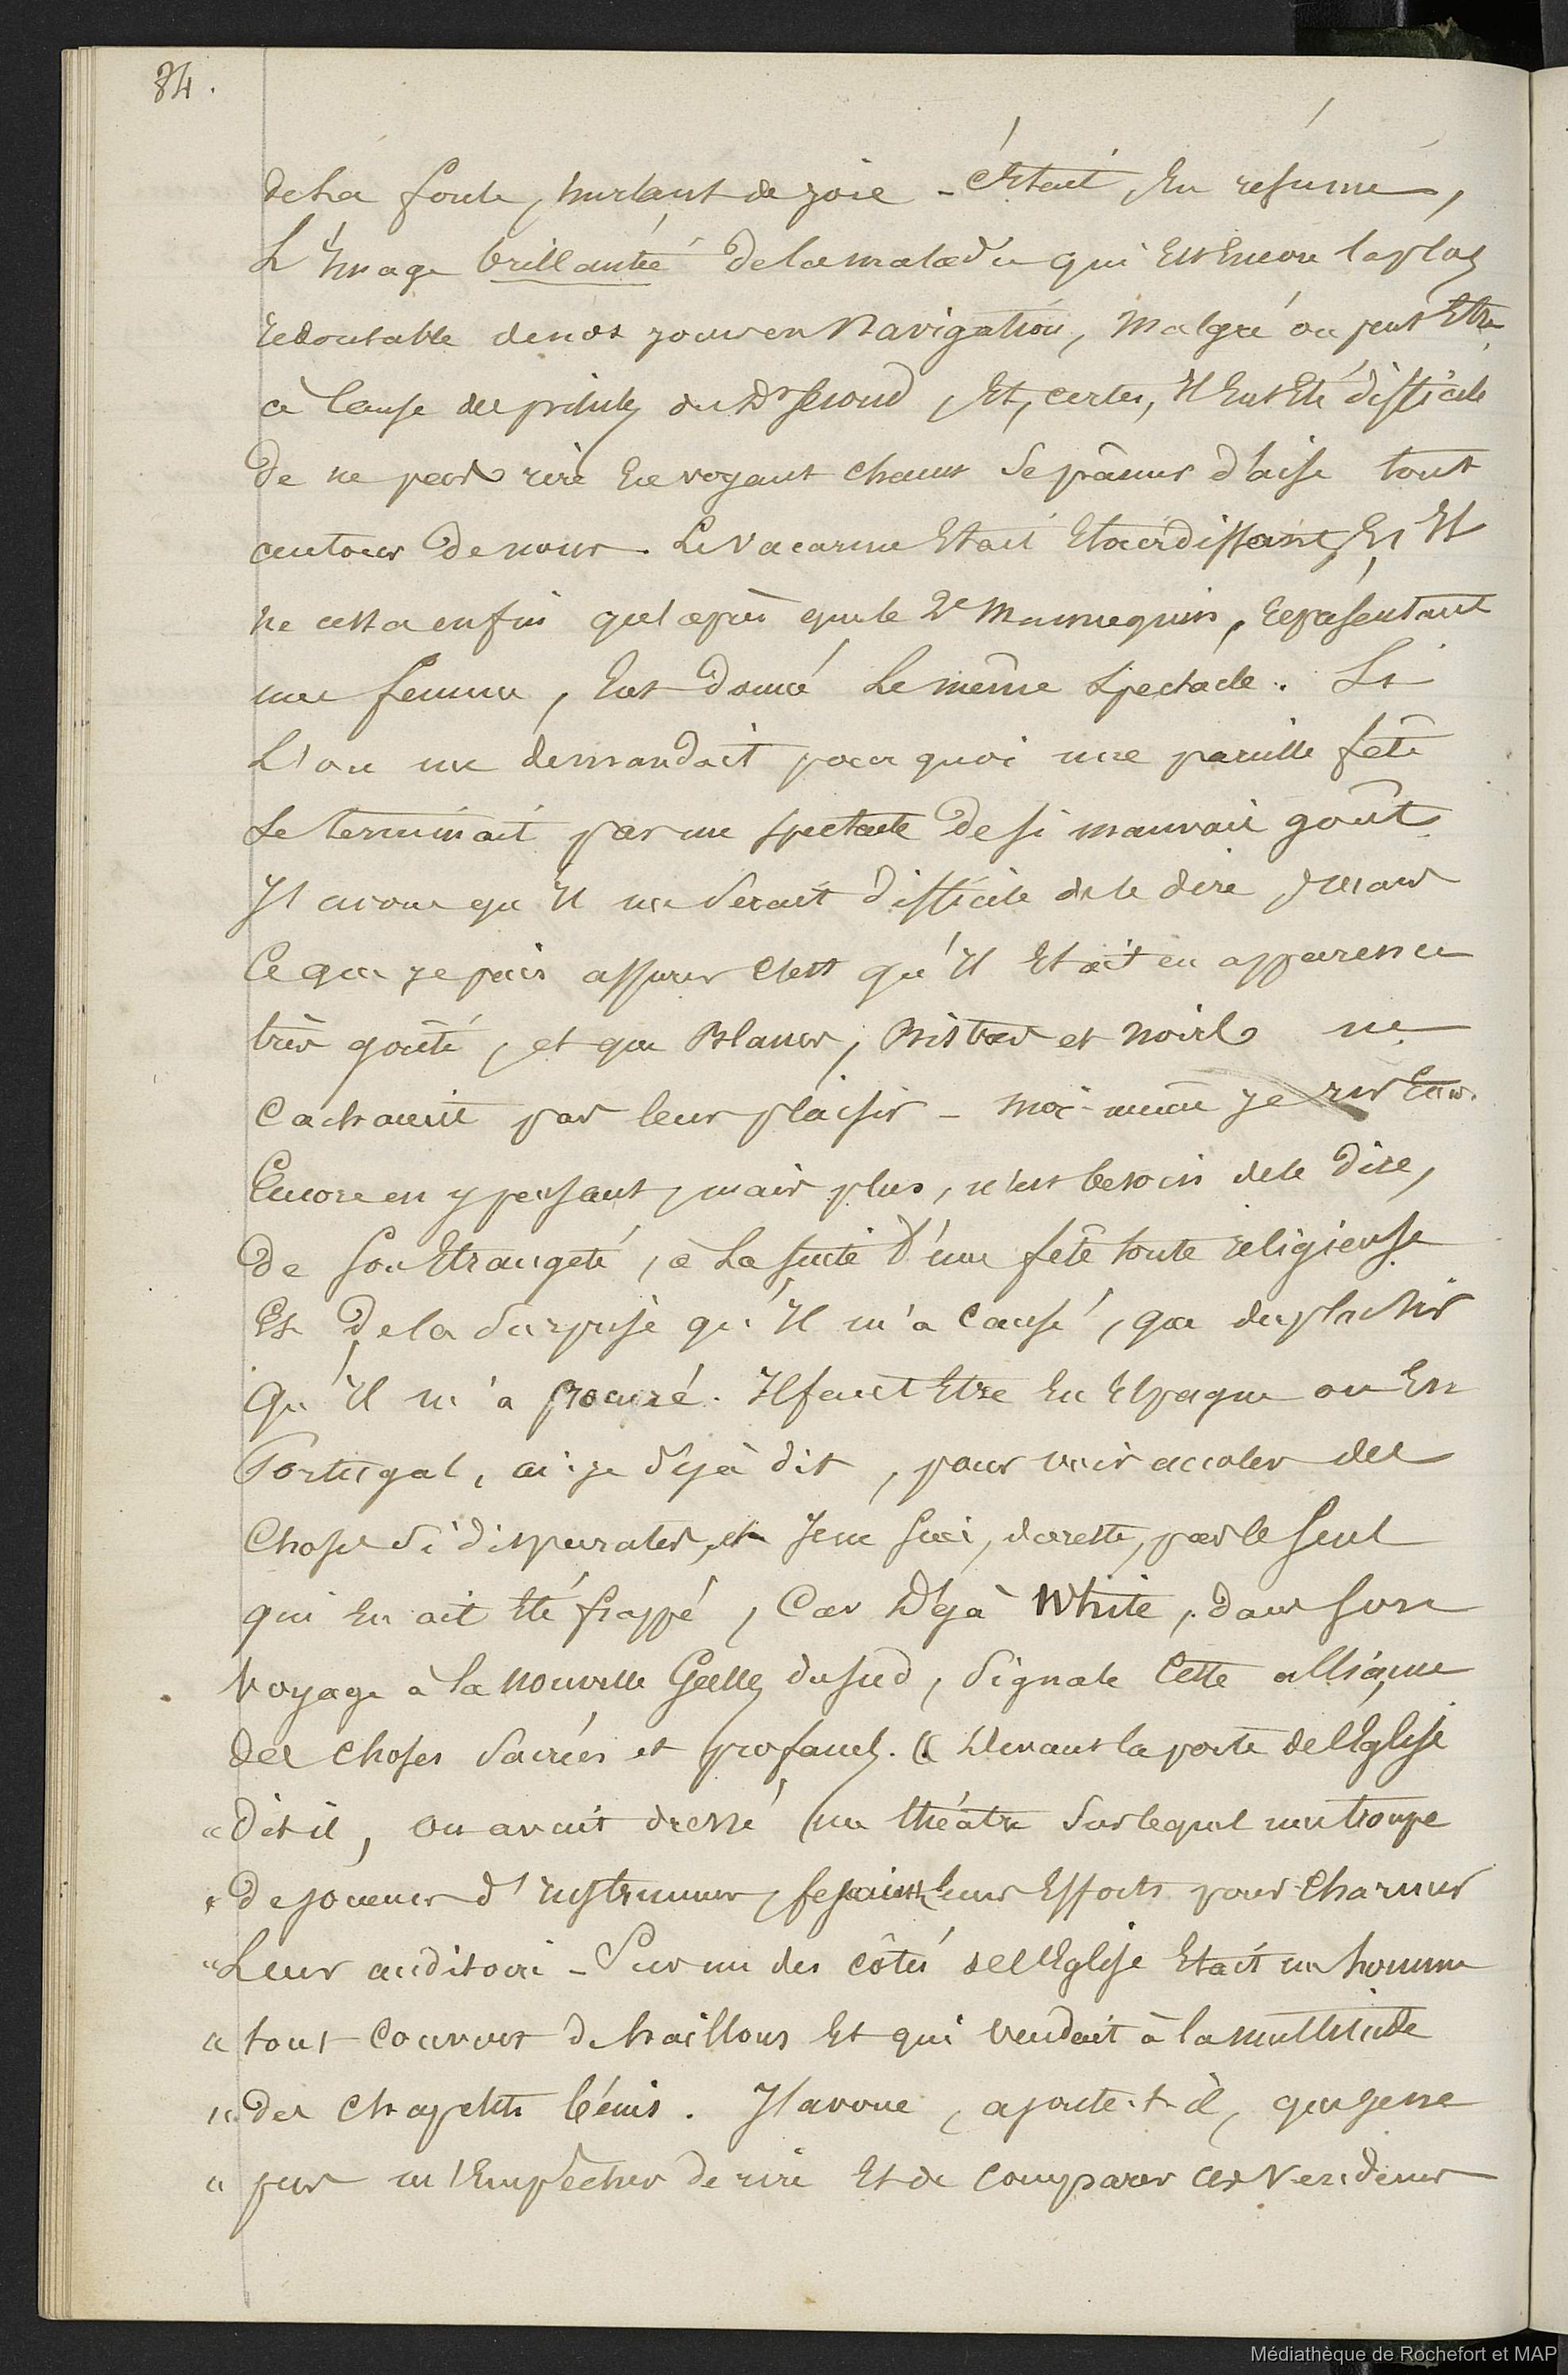 84.
de la foule, hurlant de joie - c'était, En résumé,
L'Image brillantée de la maladie qui Est Encore la plus
redoutable de nos jours en Navigation, malgré ou peut Etre
à Cause des pilules du Dr Segond, Et, certes, Il Eut Eté difficile
De ne pas rire En voyant chacun se pâmer d'aise tout
autour de nous. Le Vacarme Etait Etourdissant, Et Il
ne cessa enfin qu'après que le 2e Mannequin, représentant
une femme, Eut donné Le même spectacle. Si
L'on me demandait pourquoi une pareille fête
se terminait par un spectacle de si mauvais goût
J'avoue qu'Il me serait difficile de le dire, mais
Ce que je puis assurer C'est qu'Il Etait en apparence
très goûté, et que Blancs, Bistres et Noirs ne
Cachaient pas leur plaisir - moi-même je ris
Encore en y pensant, mais plus, n'est besoin de le Dire,
De son Etrangeté, à La suite d'une fête toute religieuse
Et de la surprise qu'Il m'a Causé, que du plaisir
Qu'Il m'a procuré. Il faut Etre En Espagne ou En
Portugal, ai-je déjà dit, pour voir accoler des
Choses si disparates, et Je ne suis, du reste, pas le seul
qui En ait Eté frappé, Car Déjà White, dans son
Voyage à la Nouvelle Galles du sud, signale Cette alliance
des choses sacrées et profanes. « Devant la porte de l'Eglise
« dit il, on avait dressé un théâtre sur lequel une troupe
« de joueurs d'Instrumens, fesaient leurs Efforts pour Charmer
« Leur auditoire - Sur un des côtés de l'Eglise Etait un homme
« tout Couvert de haillons Et qui vendait à la multitude
« des chapelets bénis. J'avoue, ajoute-t-il, que je ne
« pus m'Empêcher de rire Et de Comparer ces Vendeurs
Médiathèque de Rochefort et MAP